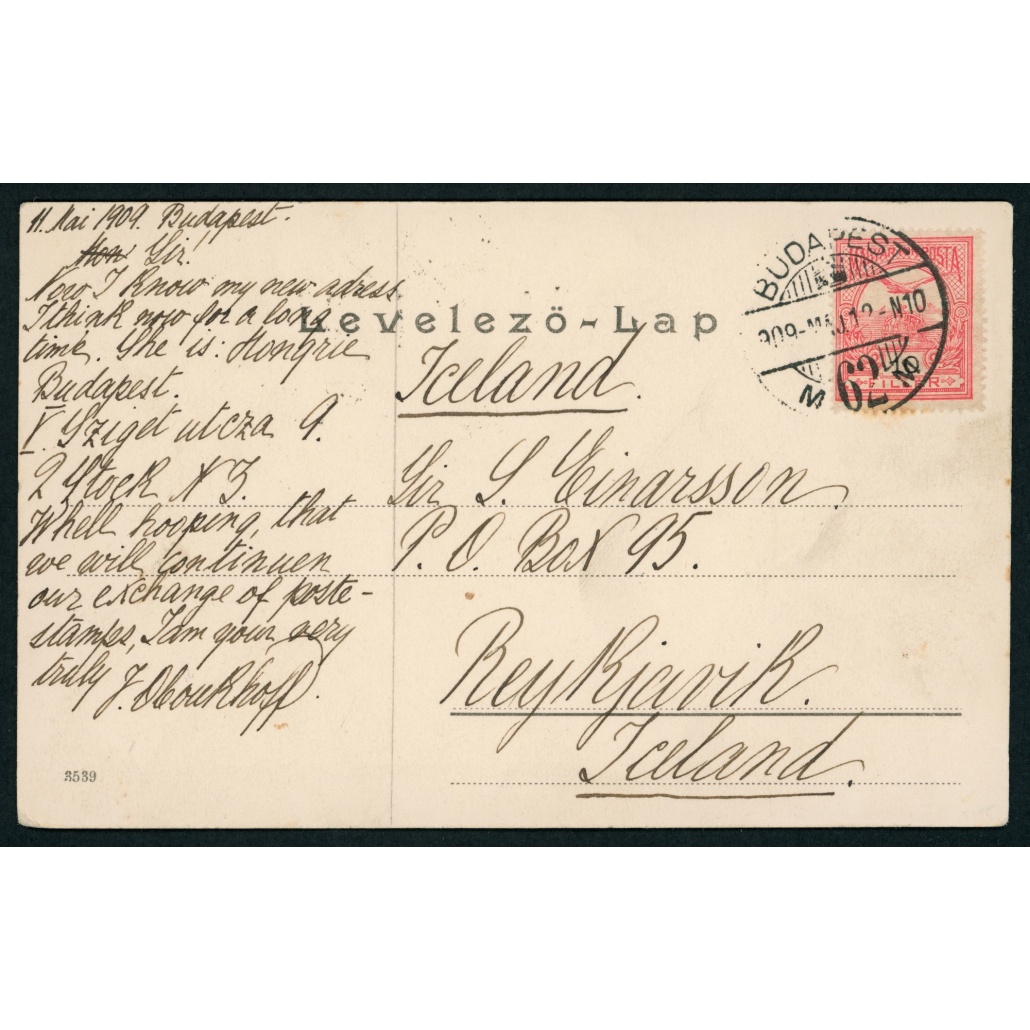 11. Mai 1909. Budapest.
Hon Sir!
Now I Know my new adress
I think now for a long
time. She is: Hongrie
Budapest.
V. Sziget utcza 9.
2 Stock N 3.
Whell hooping, that
we will continuen
our exchange of poste-
stamps, I am your very
truly J. Oboukhoff.
3539
Levelező-Lap
Iceland.
Sir S. Einarsson
P. O. Box 95.
Reykjavik.
Iceland.
BUDAPEST
909-MÁJ.12-N10
62
POSTA
10
FILLÉR